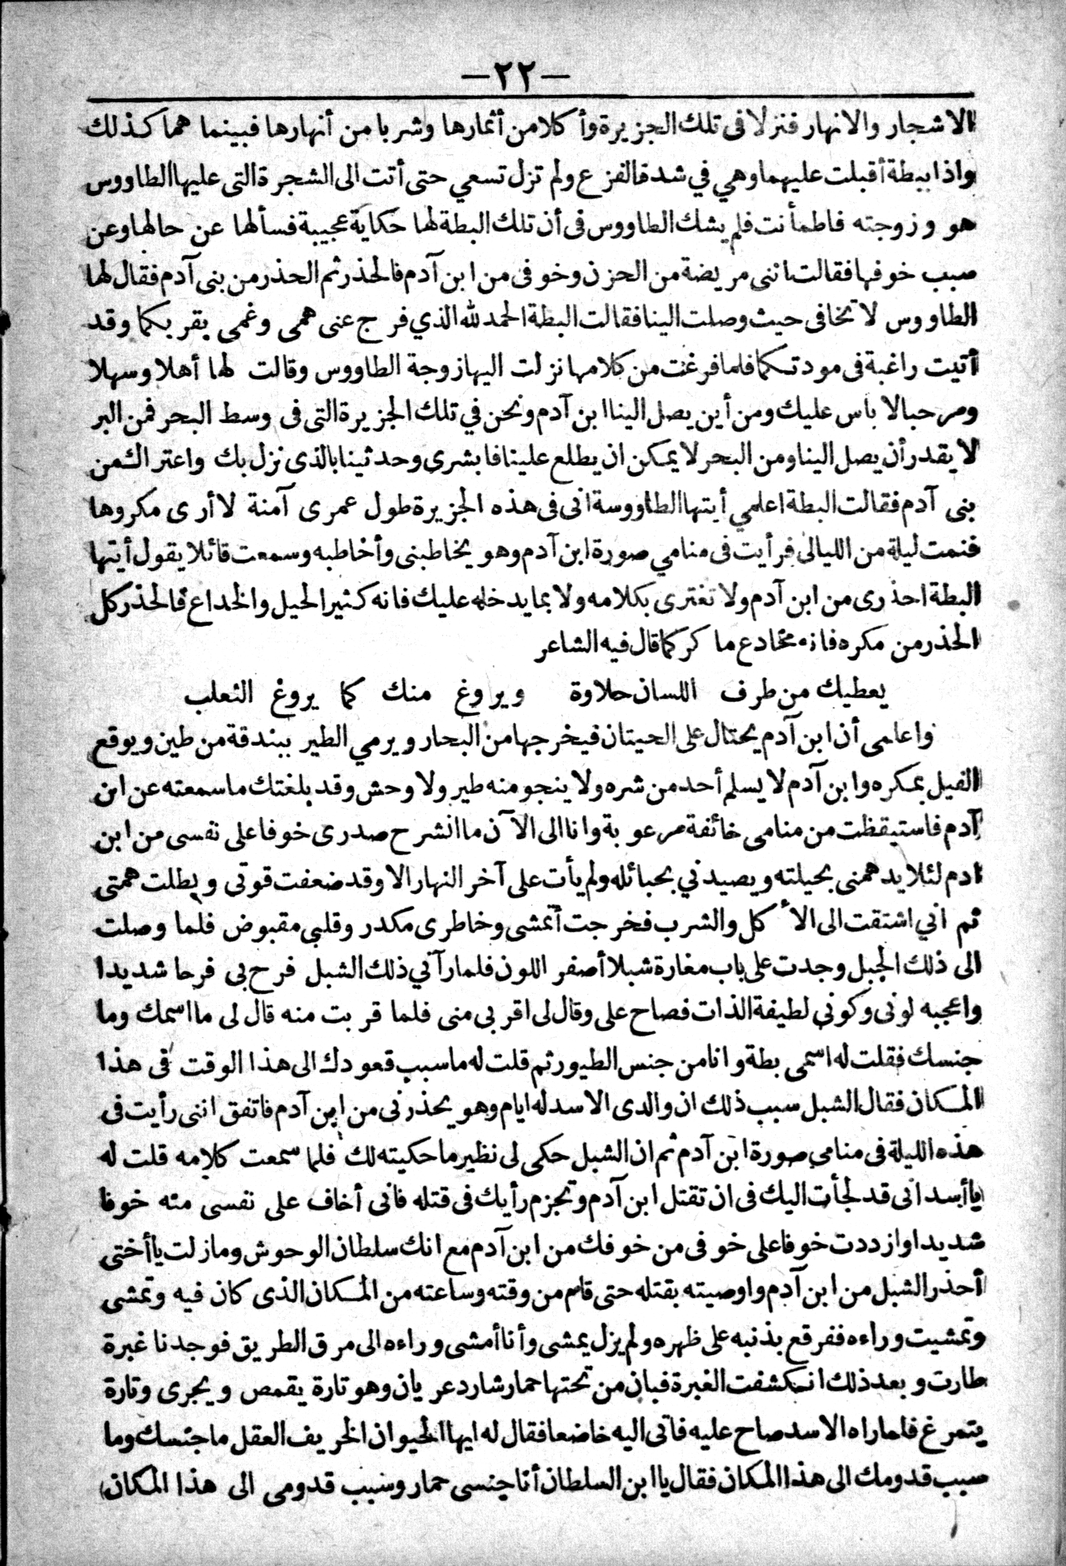 —٢٢—
الاشجار والانهار فنزلا فى تلك الجزيرة وأكلا من أثمارها وشربا من أنهارها فبينما هما كذلك
واذا ببطة أقبلت عليهما وهي في شدة الفزع ولم تزل تسعي حتى أتت الى الشجرة التى عليها الطاووس
هو وزوجته فاطمأنت فلم يشك الطاووس فى أن تلك البطة لها حكاية عجيبة فسألها عن حالها وعن
سبب خوفها فقالت اننى مريضة من الحزن وخوفى من ابن آدم فالحذر ثم الحذر من بنى آدم فقال لها
الطاووس لا تخافى حيث وصلت الينا فقالت البطة الحمد لله الذي فرج عنى همى وغمى بقربكما وقد
أتيت راغبة فى مودتكما فلما فرغت من كلامها نزلت اليها زوجة الطاووس وقالت لها أهلا وسهلا
ومرحبا لا بأس عليك ومن أين يصل الينا ابن آدم ونحن في تلك الجزيرة التى فى وسط البحر فمن البر
لا يقدر أن يصل الينا ومن البحر لا يمكن ان يطلع علينا فابشرى وحدثينا بالذى نزل بك واعتراك من
بنى آدم فقالت البطة اعلمي أيتها الطاووسة انى فى هذه الجزيرة طول عمرى آمنة لا أرى مكروها
فنمت ليلة من الليالى فرأيت فى منامي صورة ابن آدم وهو يخاطبنى وأخاطبه وسمعت قائلا يقول أيتها
البطة احذرى من ابن آدم ولا تغترى بكلامه ولا بما يدخله عليك فانه كثير الحيل والخداع فالحذر كل
الحذر من مكره فانه مخادع ماكر كما قال فيه الشاعر
يعطيك من طرف اللسان حلاوة ويروغ منك كما يروغ الثعلب
واعلمى أن ابن آدم يحتال على الحيتان فيخرجها من البحار ويرمي الطير ببندقة من طين ويوقع
الفيل بمكره وابن آدم لا يسلم أحد من شره ولا ينجو منه طير ولا وحش وقد بلغتك ما سمعته عن ابن
آدم فاستيقظت من منامى خائفة مرعوبة وانا الى الآن ما انشرح صدرى خوفا على نفسى من ابن
ادم لئلا يدهمنى بحيلته ويصيدني بحبائله ولم يأت على آخر النهار الا وقد ضعفت قوتى وبطلت همتى
ثم اني اشتقت الى الأكل والشرب فخرجت أتمشى وخاطرى مكدر وقلبى مقبوض فلما وصلت
الى ذلك الجبل وجدت على باب مغارة شبلا أصفر اللون فلما رآني ذلك الشبل فرح بى فرحا شديدا
واعجبه لونى وكوني لطيفة الذات فصاح على وقال لى اقربى منى فلما قربت منه قال لى ما اسمك وما
جنسك فقلت له اسمى بطة وانا من جنس الطيور ثم قلت له ما سبب قعودك الى هذا الوقت فى هذا
المكان فقال الشبل سبب ذلك ان والدى الاسد له ايام وهو يحذرنى من ابن آدم فاتفق اننى رأيت فى
هذه الليلة فى منامى صورة ابن آدم ثم ان الشبل حكى لى نظير ما حكيته لك فلما سمعت كلامه قلت له
يا أسد انى قد لجأت اليك فى ان تقتل ابن آدم وتجزم رأيك فى قتله فانى أخاف على نفسى منه خوفا
شديدا وازددت خوفا على خوفى من خوفك من ابن آدم مع انك سلطان الوحوش ومازلت يا أختى
أحذر الشبل من ابن آدم واوصيته بقتله حتى قام من وقته وساعته من المكان الذى كان فيه وتمشى
وتمشيت وراءه ففرقع بذنبه على ظهره ولم يزل يمشى وأنا أمشى وراءه الى مرق الطريق فوجدنا غبرة
طارت وبعد ذلك انكشفت الغبرة فبان من تحتها حمار شارد عريان وهو تارة يقمص ويجرى وتارة
يتمرغ فلما راه الاسد صاح عليه فاتى اليه خاضعا فقال له ايها الحيوان الخريف العقل ما جنسك وما
سبب قدومك الى هذا المكان فقال يا ابن السلطان أنا جنسى حمار وسبب قدومى الى هذا المكان